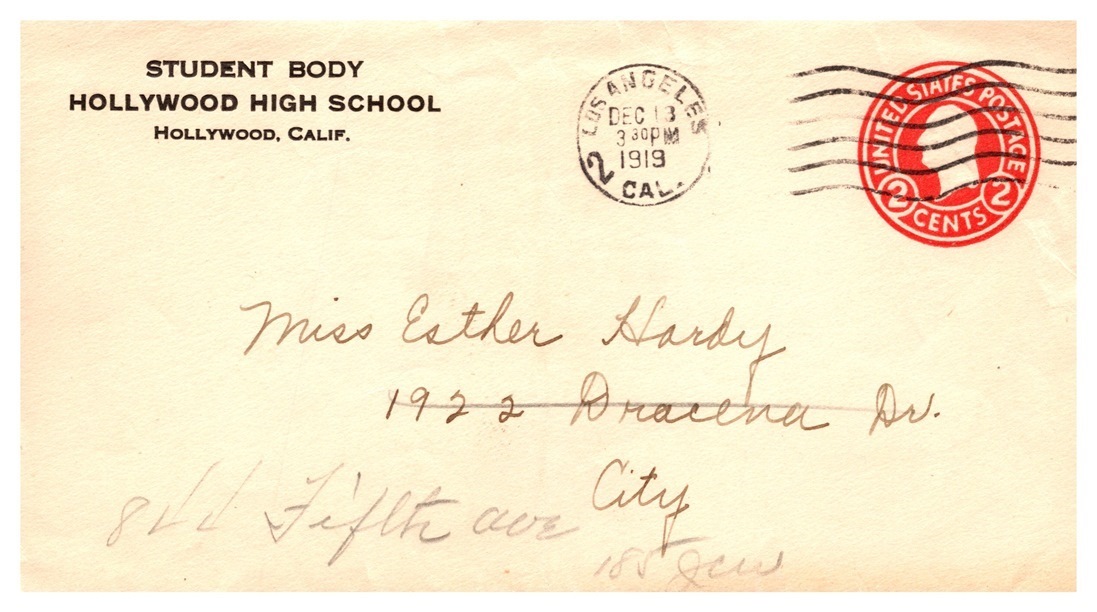 STUDENT BODY
HOLLYWOOD HIGH SCHOOL
HOLLYWOOD, CALIF.
LOS ANGELES
DEC 13
3 30PM
1919
2 CAL.
UNITED STATES POSTAGE
2 CENTS 2
Miss Esther Hardy
1922 Dracena Dr.
City
Fifth ave
185